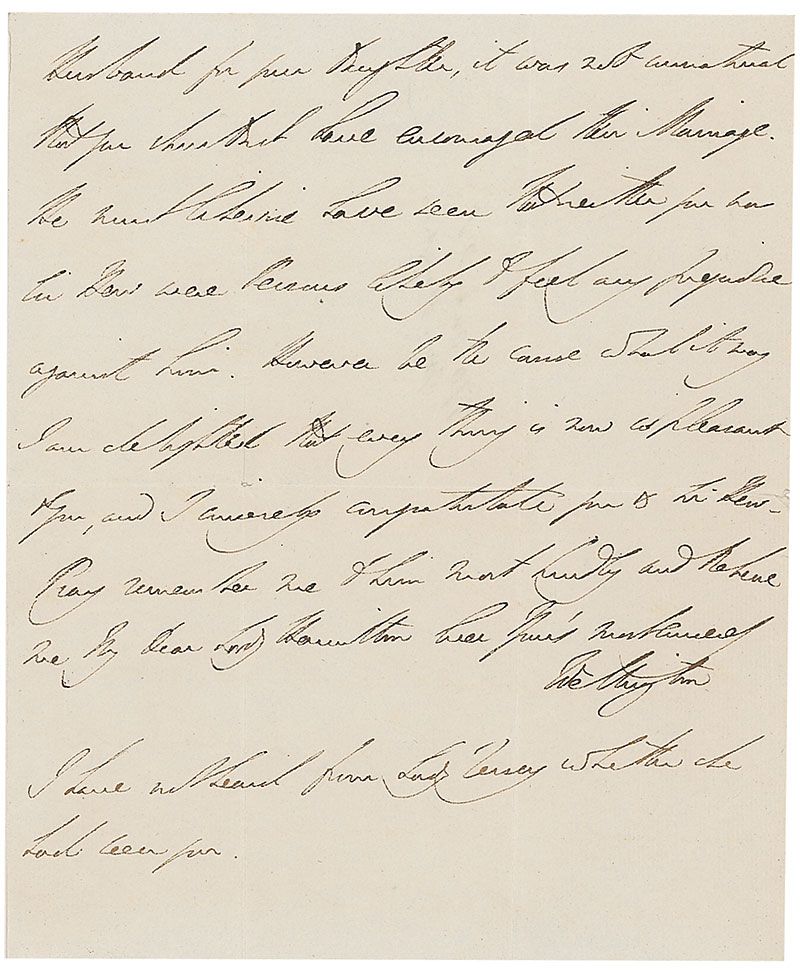 Husband for your Daughter, it was not unnatural
that you should have encouraged their Marriage.
He must likewise have seen that neither you nor
Sir Hew were Persons likely to feel any prejudice
against him. However be the cause what it may
I am delighted that every thing is now as pleasant
to you, and I sincerely congratulate you & Sir Hew.
Pray remember me to him most kindly and believe
me My Dear Lady Hamilton Ever Your's most sincerely
Wellington
I have not heard from Lady Jersey whether she
had seen you.